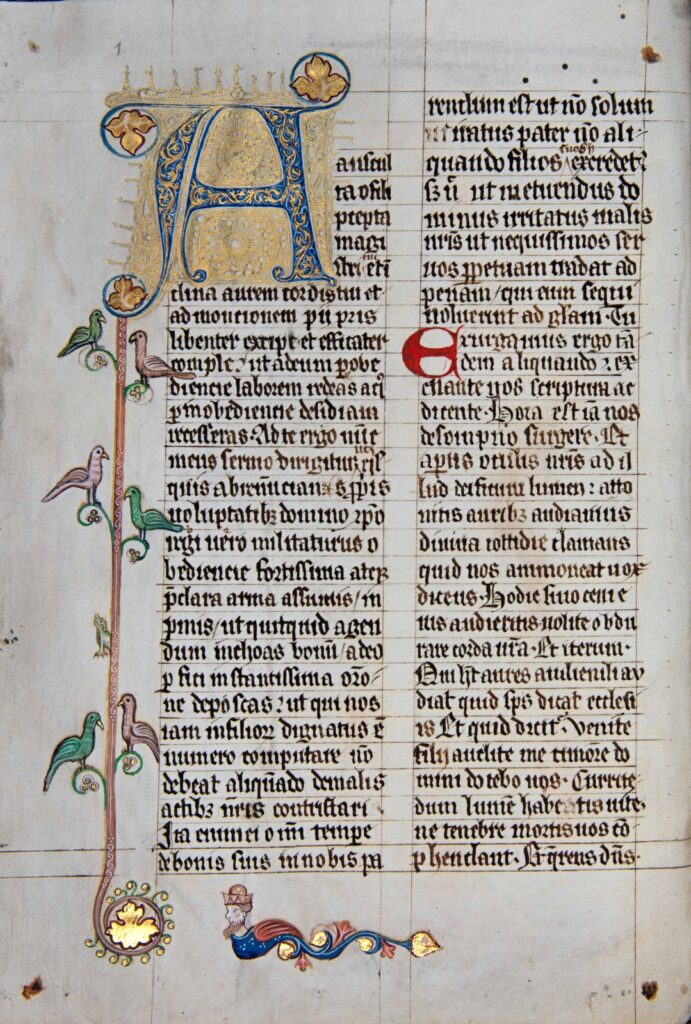 1
A
auscul
ta o fili
p̄cepta
magi
stri et i
clina aurem cordis tui et
admonicionem pii pris
libenter excipe et efficater
comple ut ad eum p obe
diencie laborem redeas a q̄
p in obediencie desidiam
recesseras. Ad te ergo nūc
meus sermo dirigitur
quis abrenuncians ꝓpͥis
uoluptatibꝫ domino xp̄o
regi uero militaturus o
bediencie fortissima atqꝫ
p̄clara arma assumis/ in
pͥmis/ ut quitquid agen
dum inchoas bonū/ a deo
ꝑfici instantissima orō
ne deposcas ut qui nos
iam in filior dignatus ē
numero computare nō
debeat aliqn̄ado de malis
actibꝫ nr̄is contristari
Ita enim ei om̄i tempe
de bonis suis in nobis pa
rendum est ut nō solum
iratus pater nō ali-
quando filios suos exeredet
sꝫ n̄ ut metuendus do
minus irritatus malis
nr̄is ut nequissimos ser
uos ꝑpetuam tradat ad
penam/ qui eum sequi
noluerint ad glam.
Exurgamus ergo tā
dem aliquando ex
citante nos scriptura ac
dicente. Hora est iā nos
de sompno surgere. Et
aptis oculis nr̄is ad il
lud deificum lumen atto
nitis auribꝫ audiamus
diuina cottidie clamans
quid nos ammoneat uox
dicens. Hodie si uocem e
ius audieritis nolite obdu
rare corda ur̄a. Et iterum.
Qui ht̄ aures audiendi au
diat quid sp̄s dicat ecclesi
is Et quid dicit. Venite
filii audite me timorē do
mini docebo uos. Currite
dum lumē habeatis uite.
ne tenebre mortis uos cō
p̄hendant. Et q̄rens dn̄s.